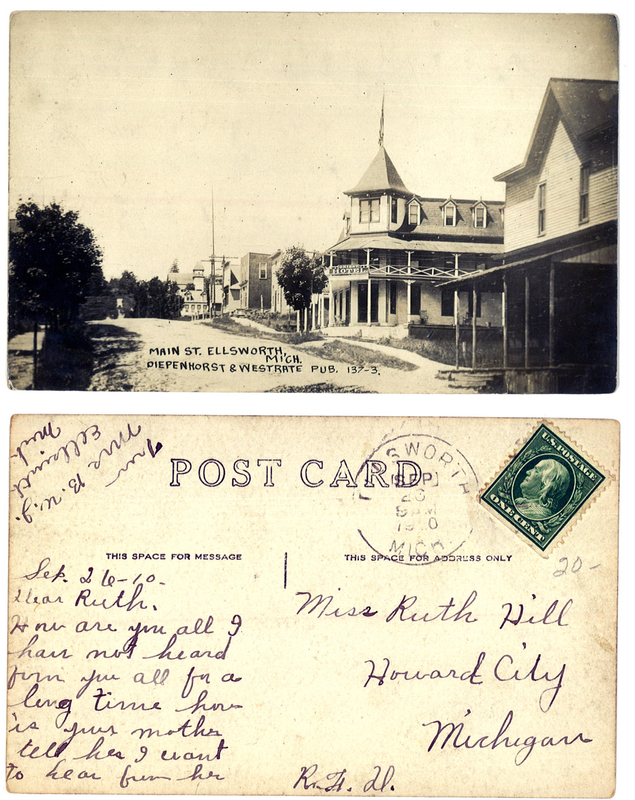 HOTEL
MAIN ST. ELLSWORTH,
MICH.
DIEPENHORST & WESTRATE PUB. 137-3.
Mrs B. W. J.
Ellsworth
Mich.
POST CARD
ELLSWORTH
SEP
26
9 M
1910
MICH
U.S. POSTAGE
ONE CENT
20-
THIS SPACE FOR MESSAGE
THIS SPACE FOR ADDRESS ONLY
Sep. 26-10-
Dear Ruth.
How are you all I
hav not heard
from you all for a
long time how
is your mother
tell her I want
to hear from her
Miss Ruth Hill
Howard City
Michigan
R. F. D.